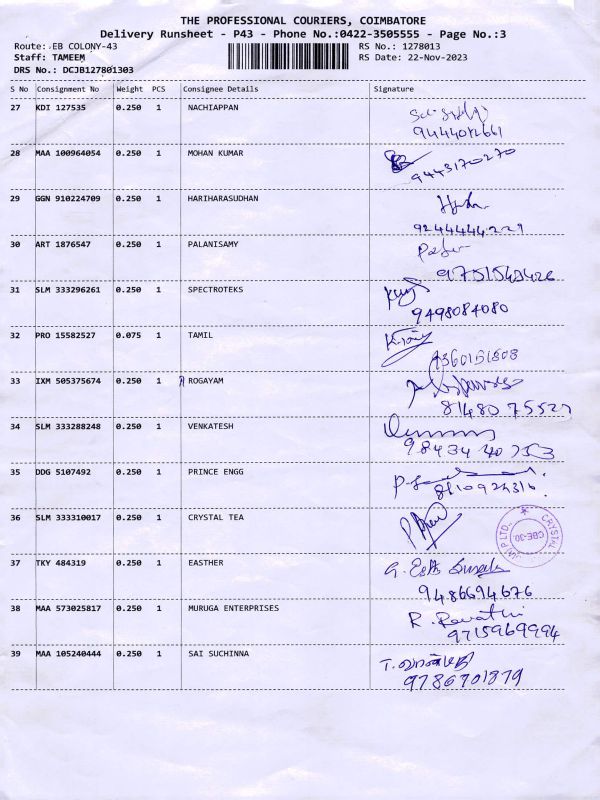 THE PROFESSIONAL COURIERS, COIMBATORE
Delivery Runsheet - P43 - Phone No.:0422-3505555 - Page No.:3
Route: EB COLONY-43 RS No.: 1278013
Staff: TAMEEM RS Date: 22-Nov-2023
DRS No.: DCJB127801303
S No Consignment No Weight PCS Consignee Details Signature
27 KDI 127535 0.250 1 NACHIAPPAN
28 MAA 100964054 0.250 1 MOHAN KUMAR
9443170270
29 GGN 910224709 0.250 1 HARIHARASUDHAN
9244444229
30 ART 1876547 0.250 1 PALANISAMY
31 SLM 333296261 0.250 1 SPECTROTEKS
9498084080
32 PRO 15582527 0.075 1 TAMIL
33 IXM 505375674 0.250 1 ROGAYAM
81480 75527
34 SLM 333288248 0.250 1 VENKATESH
98434 40753
35 DDG 5107492 0.250 1 PRINCE ENGG
36 SLM 333310017 0.250 1 CRYSTAL TEA
CRYSTAL
CBE-30.
37 TKY 484319 0.250 1 EASTHER
9486694676
38 MAA 573025817 0.250 1 MURUGA ENTERPRISES
R. Revathi
9715969994
39 MAA 105240444 0.250 1 SAI SUCHINNA
9786701879